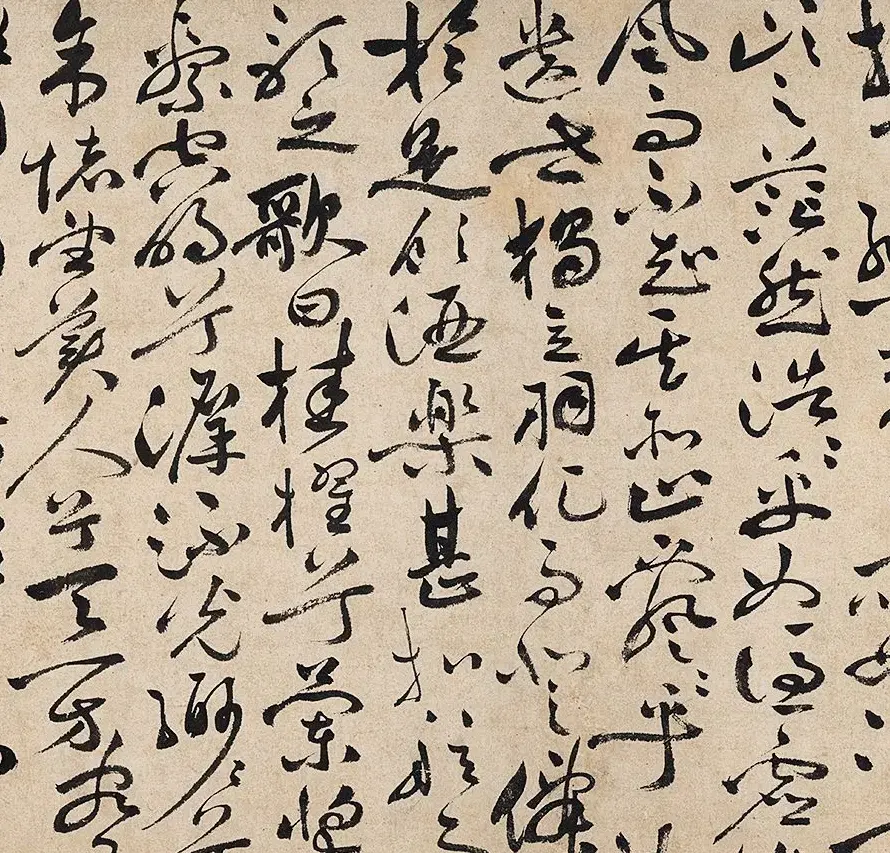 頃之茫然浩〻乎如馮虛
風而不知其所止飄〻乎
遺世獨立羽化而登僊
於是飲酒樂甚扣舷而
歌之歌曰桂櫂兮蘭槳
擊空明兮泝流光渺〻兮
余懷望美人兮天一方客